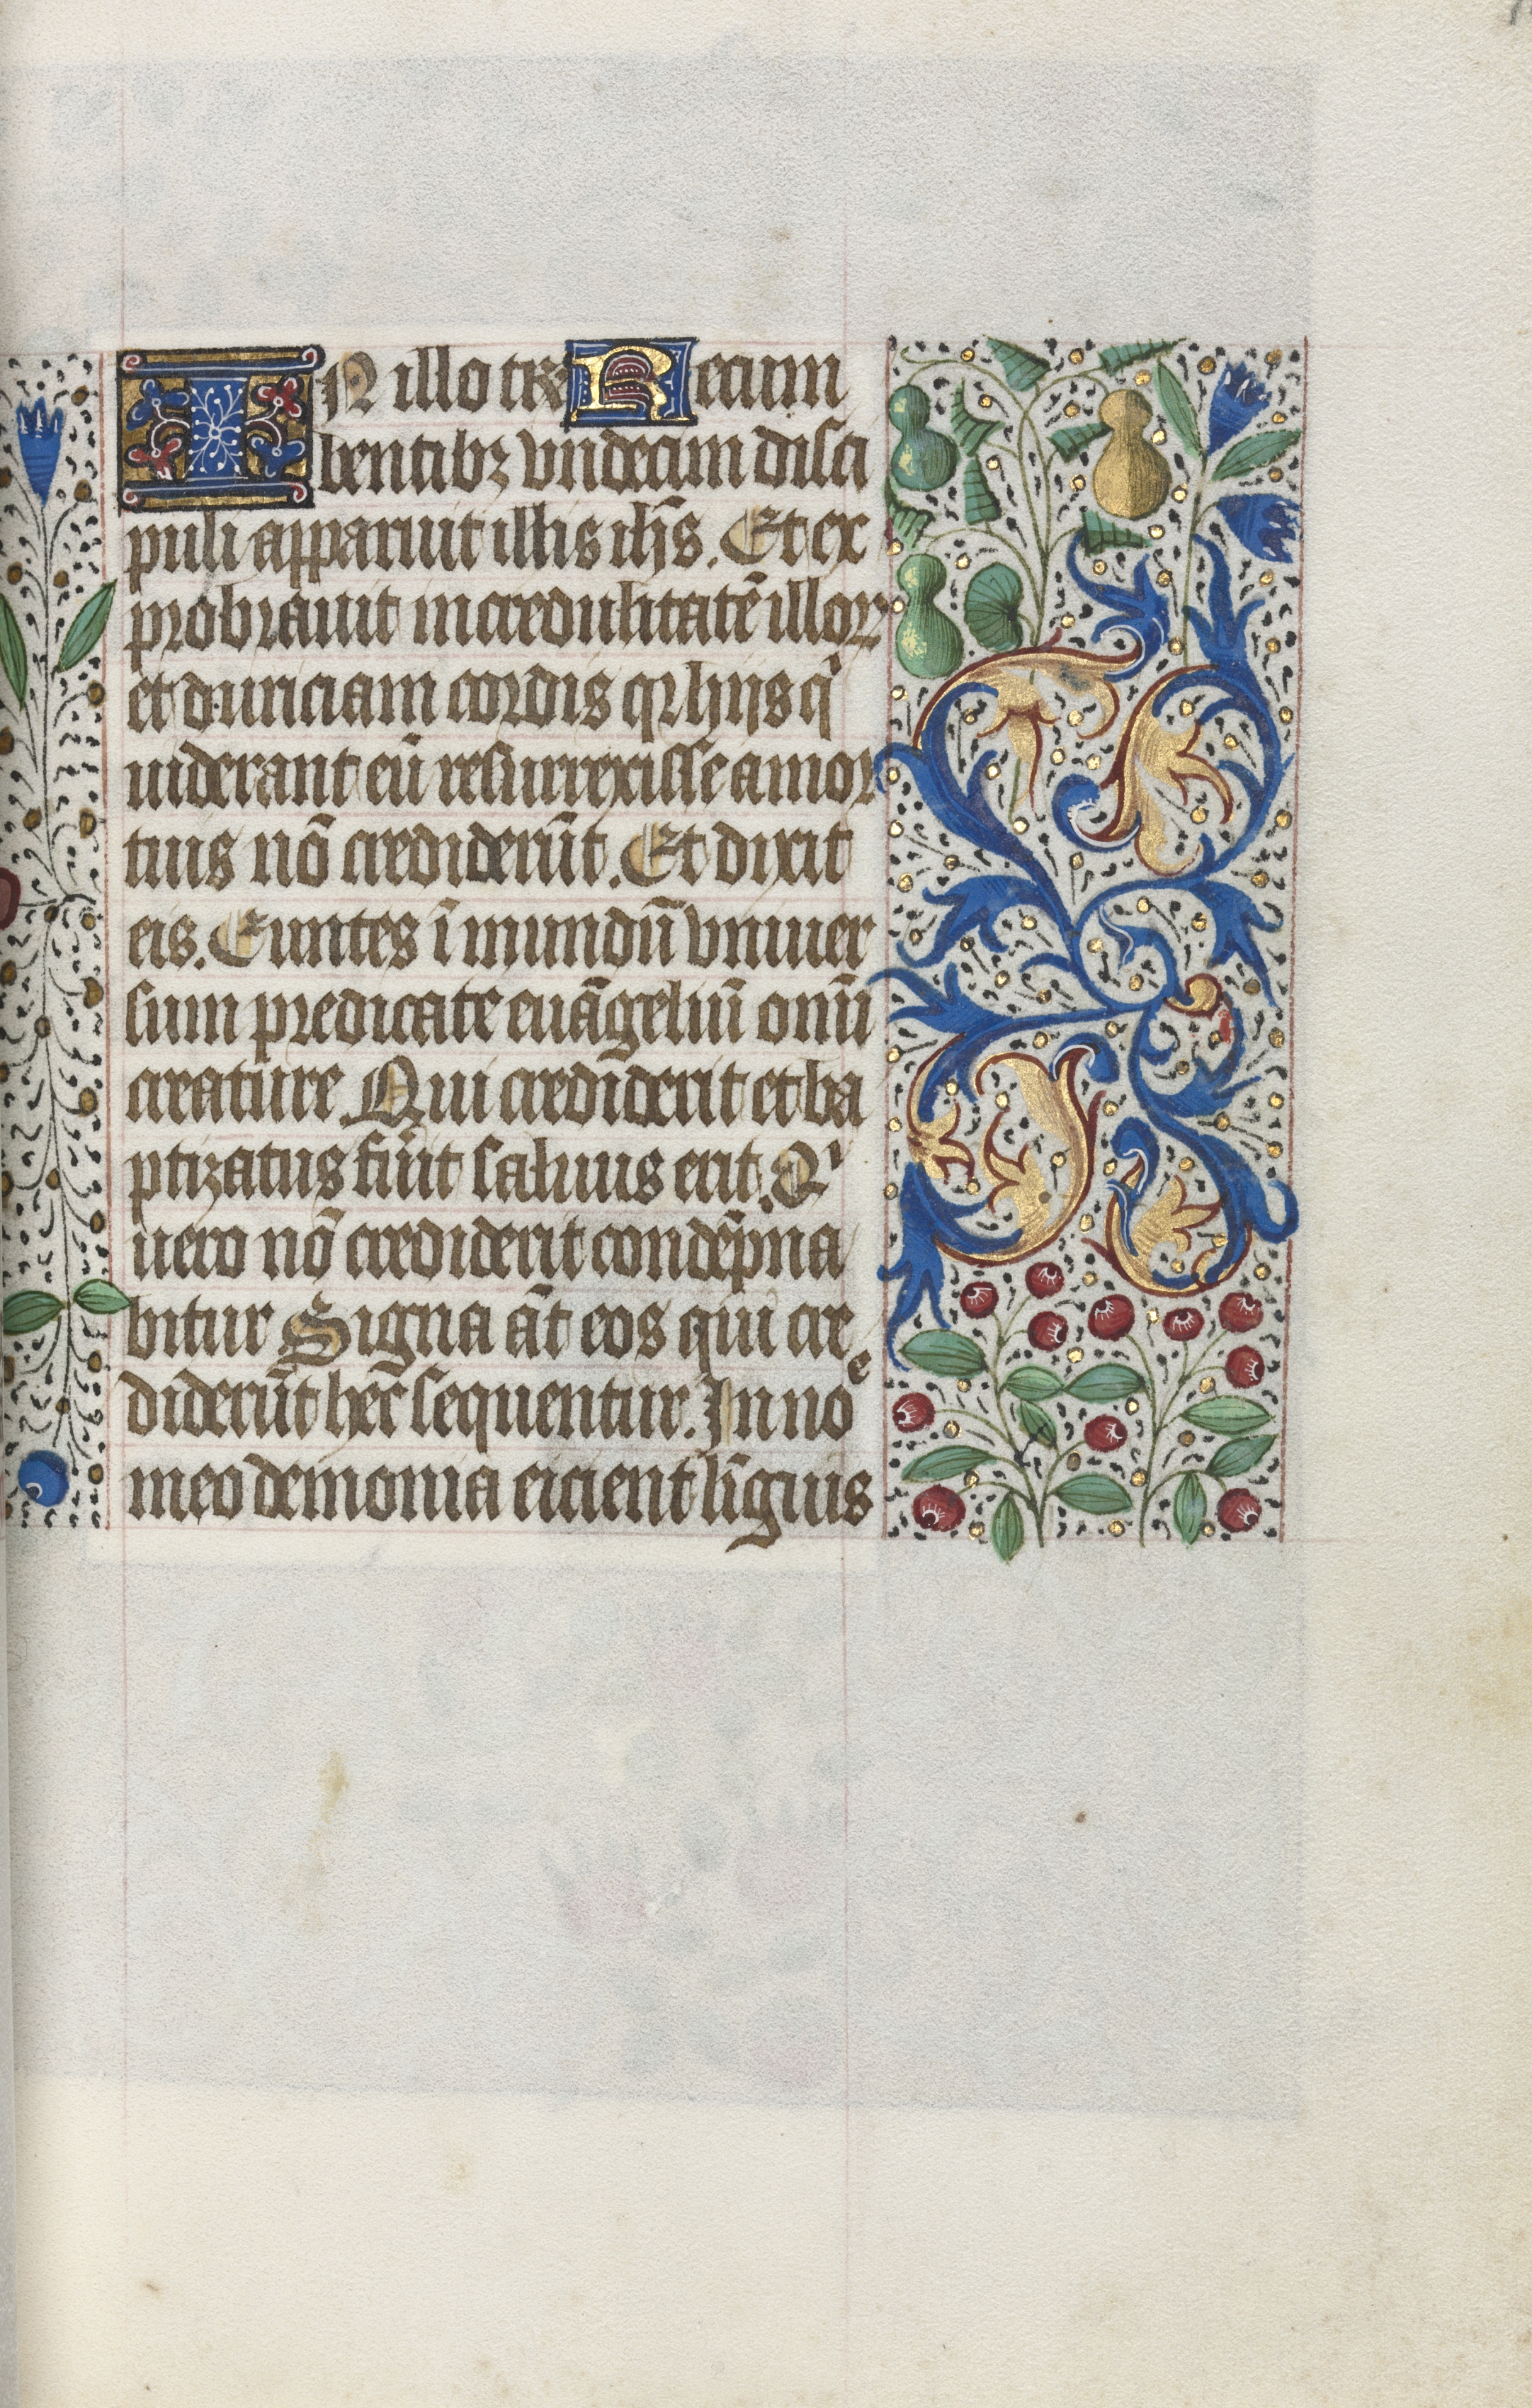 IN illo tꝑe Recum
bentibꝫ vndecim disci
puli apparuit illis ih̄s. Et ex
probrauit incredulitatē illoꝝ
et duriciam cordis qꝛ hijs qͥ
uiderant eū resurrexisse a mor
tuis nō crediderūt. Et dixit
eis. Euntes ī mundū vniuer
sum predicate euāgeliū om̄i
creature Qui crediderit et ba
ptizatus fūit saluus erit. Qͥ
uero nō crediderit condēpna
bitur Signa āt eos qui cre
diderūt hec̄ sequentur. In noͤ
meo demonia eicient līguis